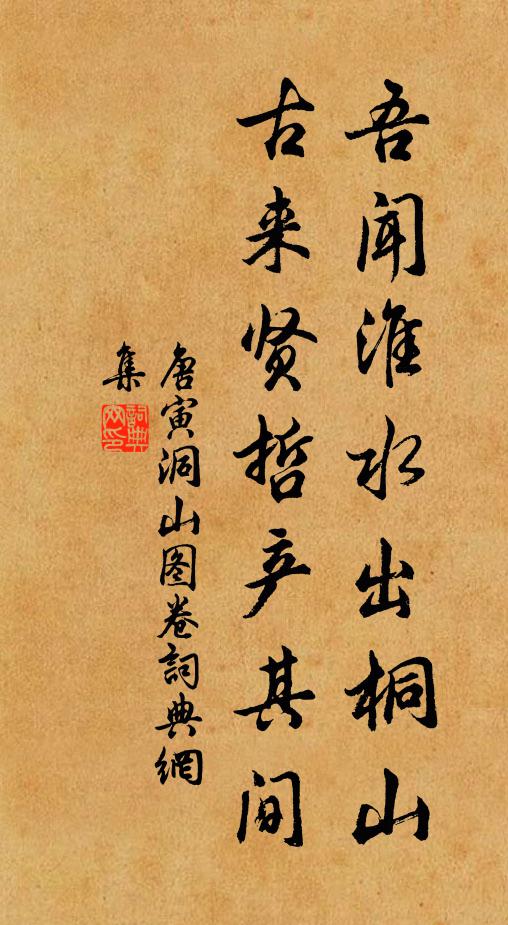 吾闻淮水出桐山
古来贤哲产其间
唐寅洞山图卷詞典網
集
詞典
网印